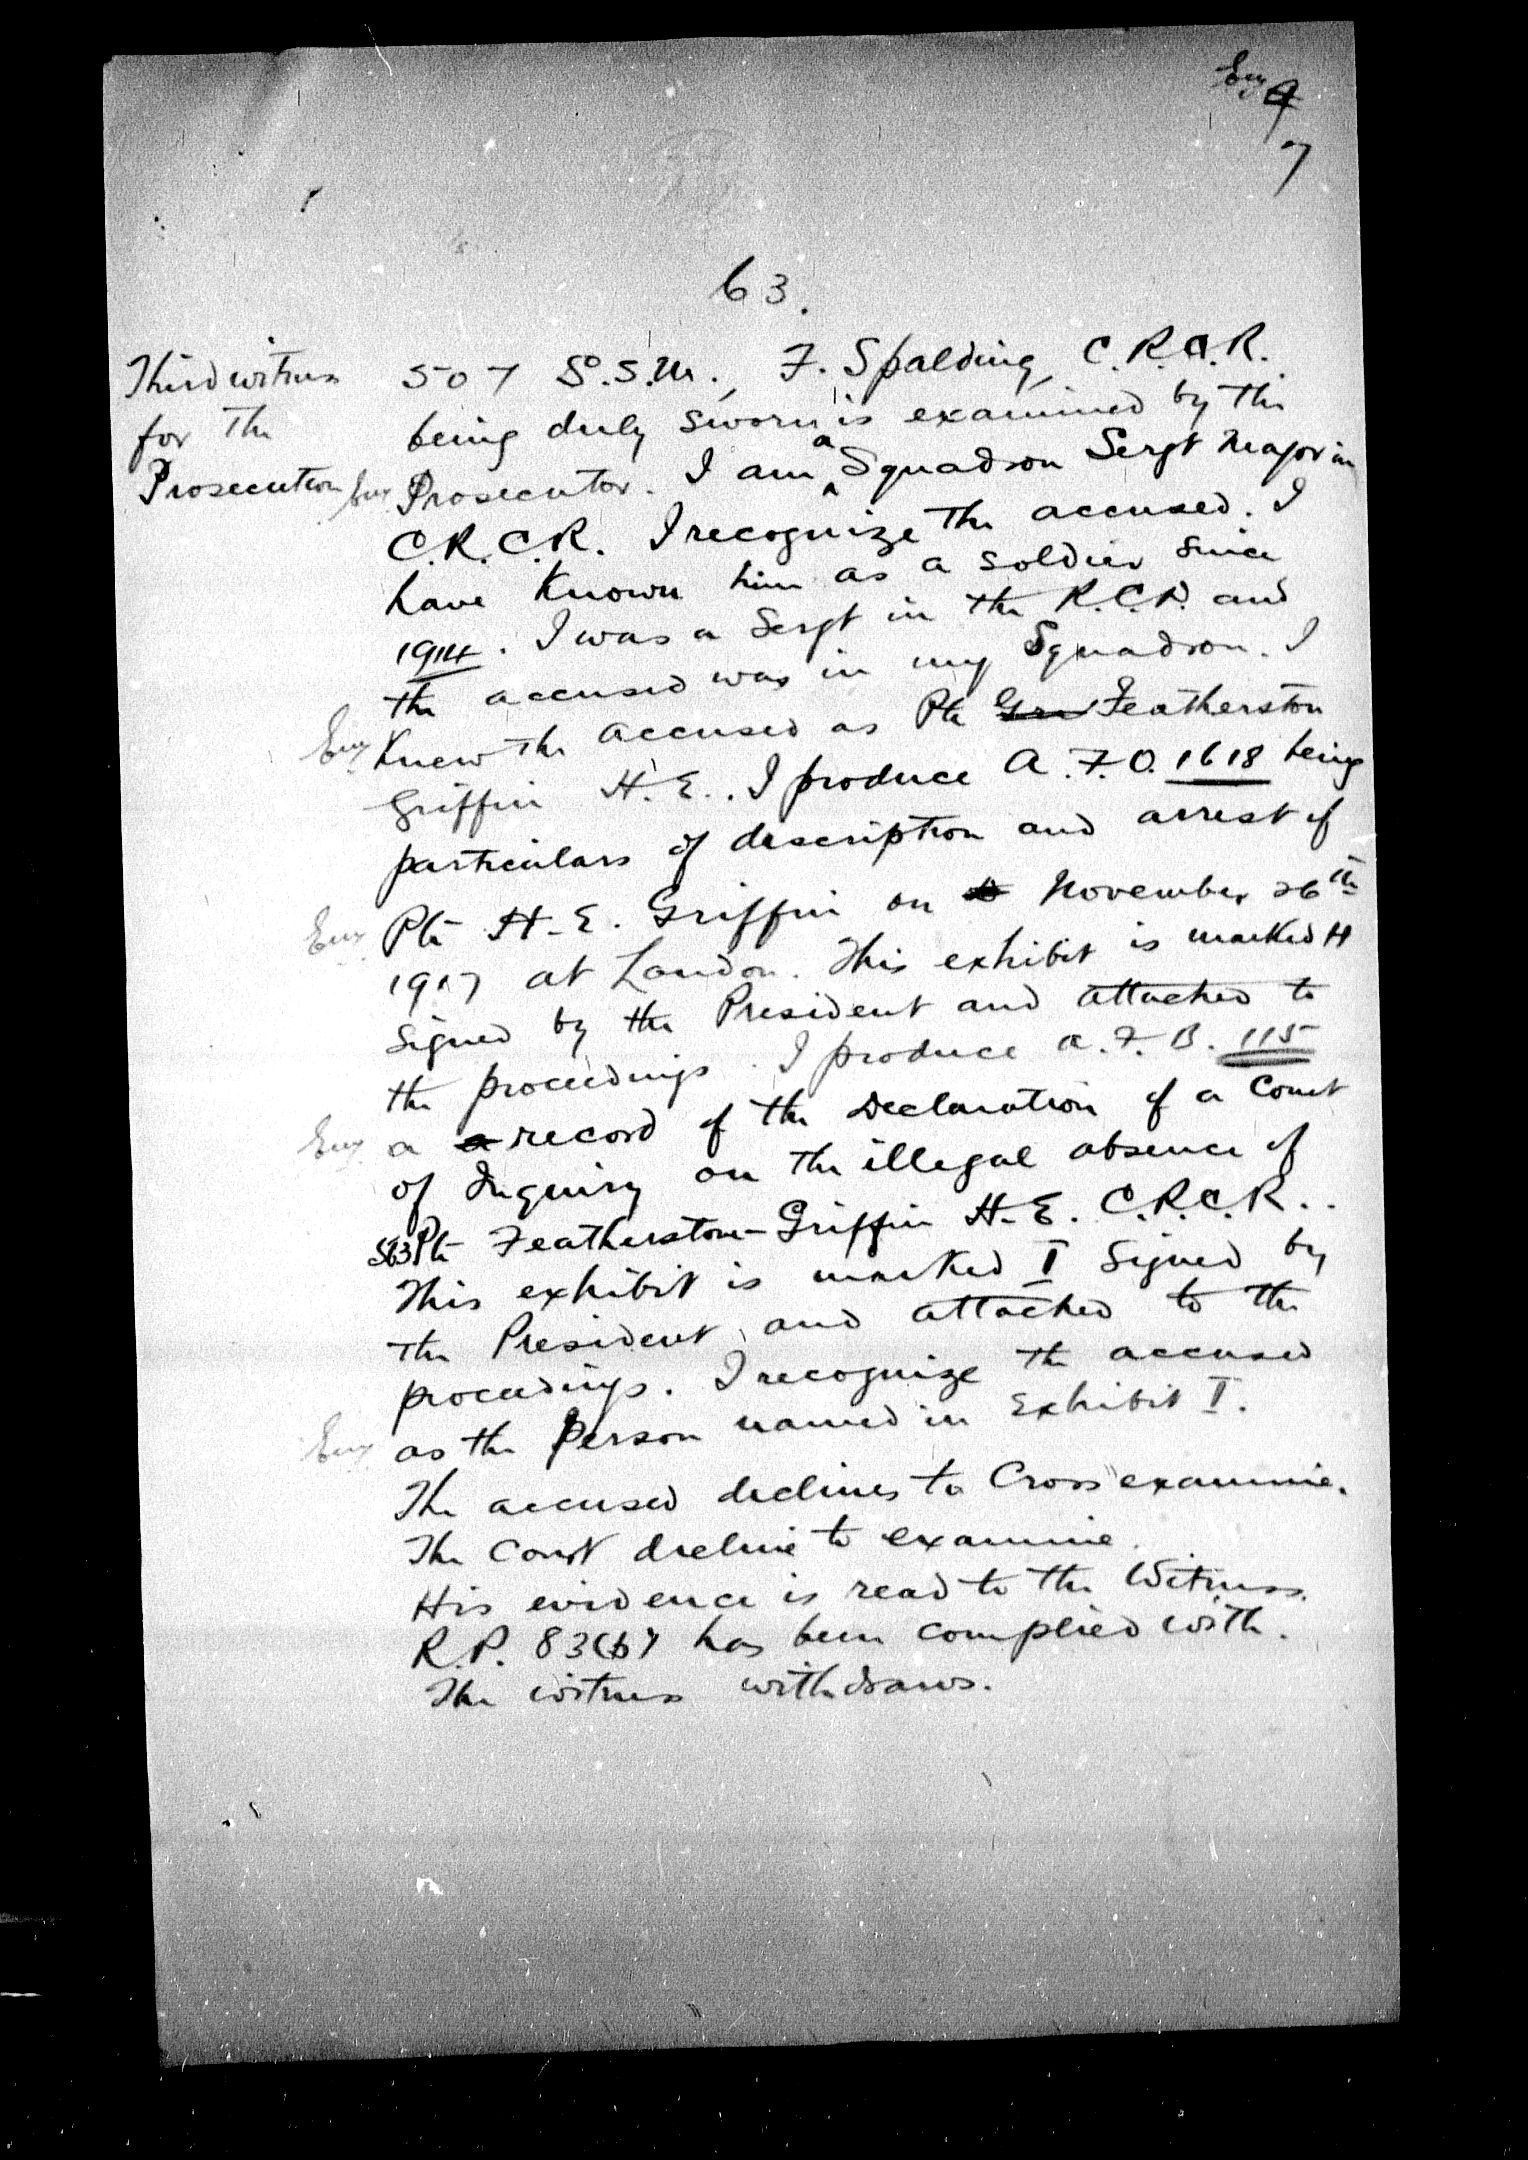 7
63.
Third witness
for the
Prosecution
507 S.S.M., F. Spalding, C.R.C.R.
being duly sworn is examined by the
Prosecutor. I am a Squadron Sergt Major in
C.R.C.R. I recognize the accused. I
have known him as a soldier since
1914. I was a Sergt in the R.C.D. and
the accused was in my Squadron. I
knew the accused as Pte Gri Featherston
Griffin H.E.. I produce A.F.O. 1618 being
particulars of description and arrest of
Pte H.E. Griffin on November 26th
1917 at London. This exhibit is marked H
signed by the President and attached to
the proceedings. I produce A.F.B. 115
a a record of the Declaration of a Court
of Inquiry on the illegal absence of
563 Pte Featherston-Griffin H.E. C.R.C.R..
This exhibit is marked I signed by
the President, and attached to the
proceedings. I recognize the accused
as the person named in Exhibit I.
The accused declines to Cross examine.
The Court decline to examine.
His evidence is read to the Witness.
R.P. 83(b) has been complied with.
The witness withdraws.